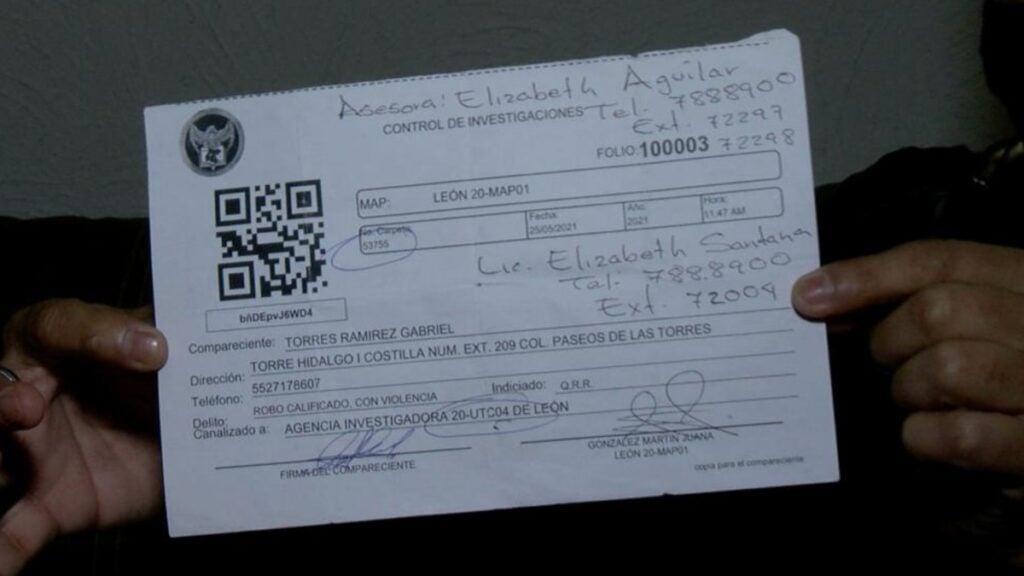 Asesora: Elizabeth Aguilar
Tel. 7888900
CONTROL DE INVESTIGACIONES
Ext. 72297
72298
FOLIO: 100003
MAP: LEÓN 20-MAP01
No. Carpeta: Fecha: Año: Hora:
53755 25/05/2021 2021 11:47 AM
Lic. Elizabeth Santana
Tel. 788.8900
Ext. 72004
bñDEpvJ6WD4
Compareciente: TORRES RAMIREZ GABRIEL
Dirección: TORRE HIDALGO I COSTILLA NUM. EXT. 209 COL. PASEOS DE LAS TORRES
Teléfono: 5527178607
Delito: ROBO CALIFICADO, CON VIOLENCIA Indiciado: Q.R.R.
Canalizado a: AGENCIA INVESTIGADORA 20-UTC04 DE LEÓN
FIRMA DEL COMPARECIENTE
GONZALEZ MARTIN JUANA
LEÓN 20-MAP01
copia para el compareciente